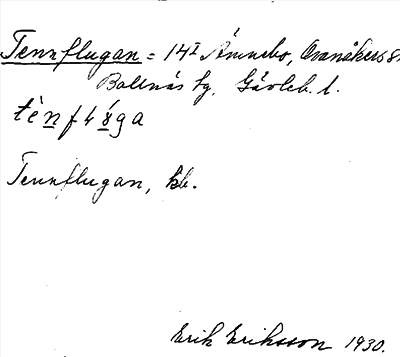 Tennflugan = 14 I Ämnebo, Ovanåkers s
Bollnäs tg, Gävleb. l.
tènflúga
Tennflugan, kb.
Erik Eriksson 1930.